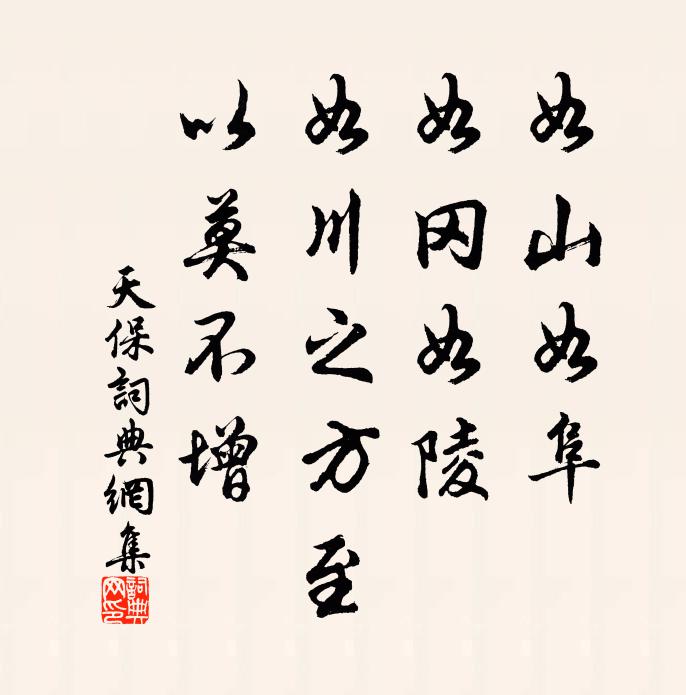 如山如阜
如冈如陵
如川之方至
以莫不增
天保詞典網集
詞典
网印